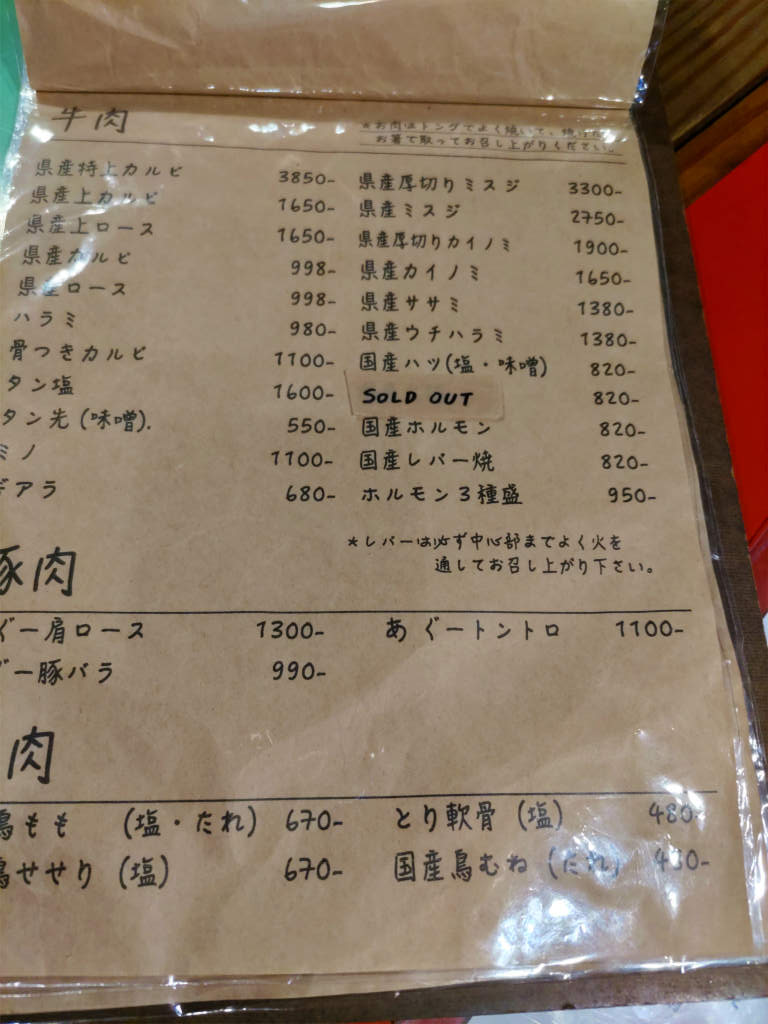 牛肉
*お肉はトングでよく焼いて、焼けたら
お箸で取ってお召し上がりください。
県産特上カルビ 3850-
県産上カルビ 1650-
県産上ロース 1650-
県産カルビ 998-
県産ロース 998-
ハラミ 980-
骨つきカルビ 1100-
タン塩 1600-
タン先 (味噌). 550-
ミノ 1100-
ギアラ 680-
県産厚切りミスジ 3300-
県産ミスジ 2750-
県産厚切りカイノミ 1900-
県産カイノミ 1650-
県産ササミ 1380-
県産ウチハラミ 1380-
国産ハツ(塩・味噌) 820-
SOLD OUT 820-
国産ホルモン 820-
国産レバー焼 820-
ホルモン3種盛 950-
*レバーは必ず中心部までよく火を
通してお召し上がり下さい。
豚肉
ぐー肩ロース 1300-
ぐー豚バラ 990-
あぐートントロ 1100-
肉
鳥もも (塩・たれ) 670-
鳥せせり (塩) 670-
とり軟骨 (塩) 480-
国産鳥むね (たれ)